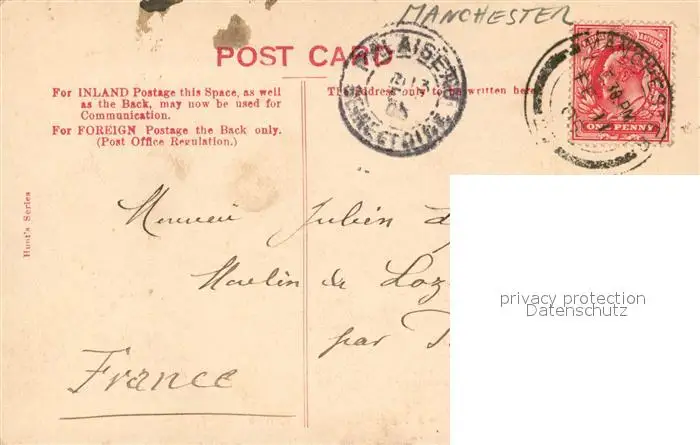 MANCHESTER
POST CARD
For INLAND Postage this Space, as well
as the Back, may now be used for
Communication.
For FOREIGN Postage the Back only.
(Post Office Regulation.)
The Address only to be written here
ONE PENNY
Hunt's Series
Monsieur Julien
Moulin de Loz
par
France
privacy protection
Datenschutz